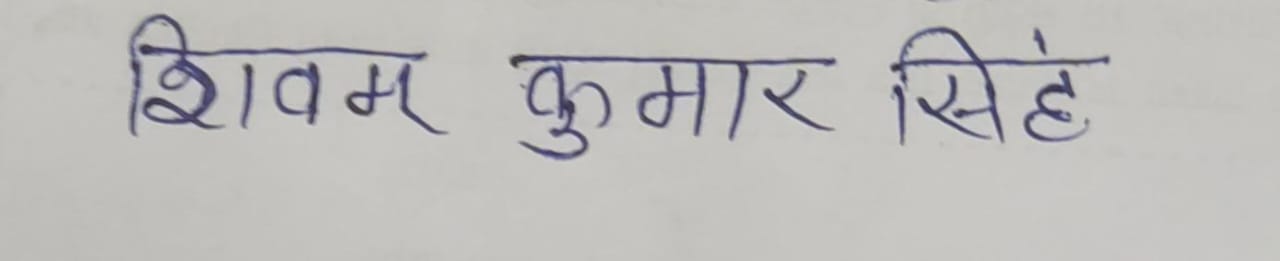 शिवम कुमार सिहं